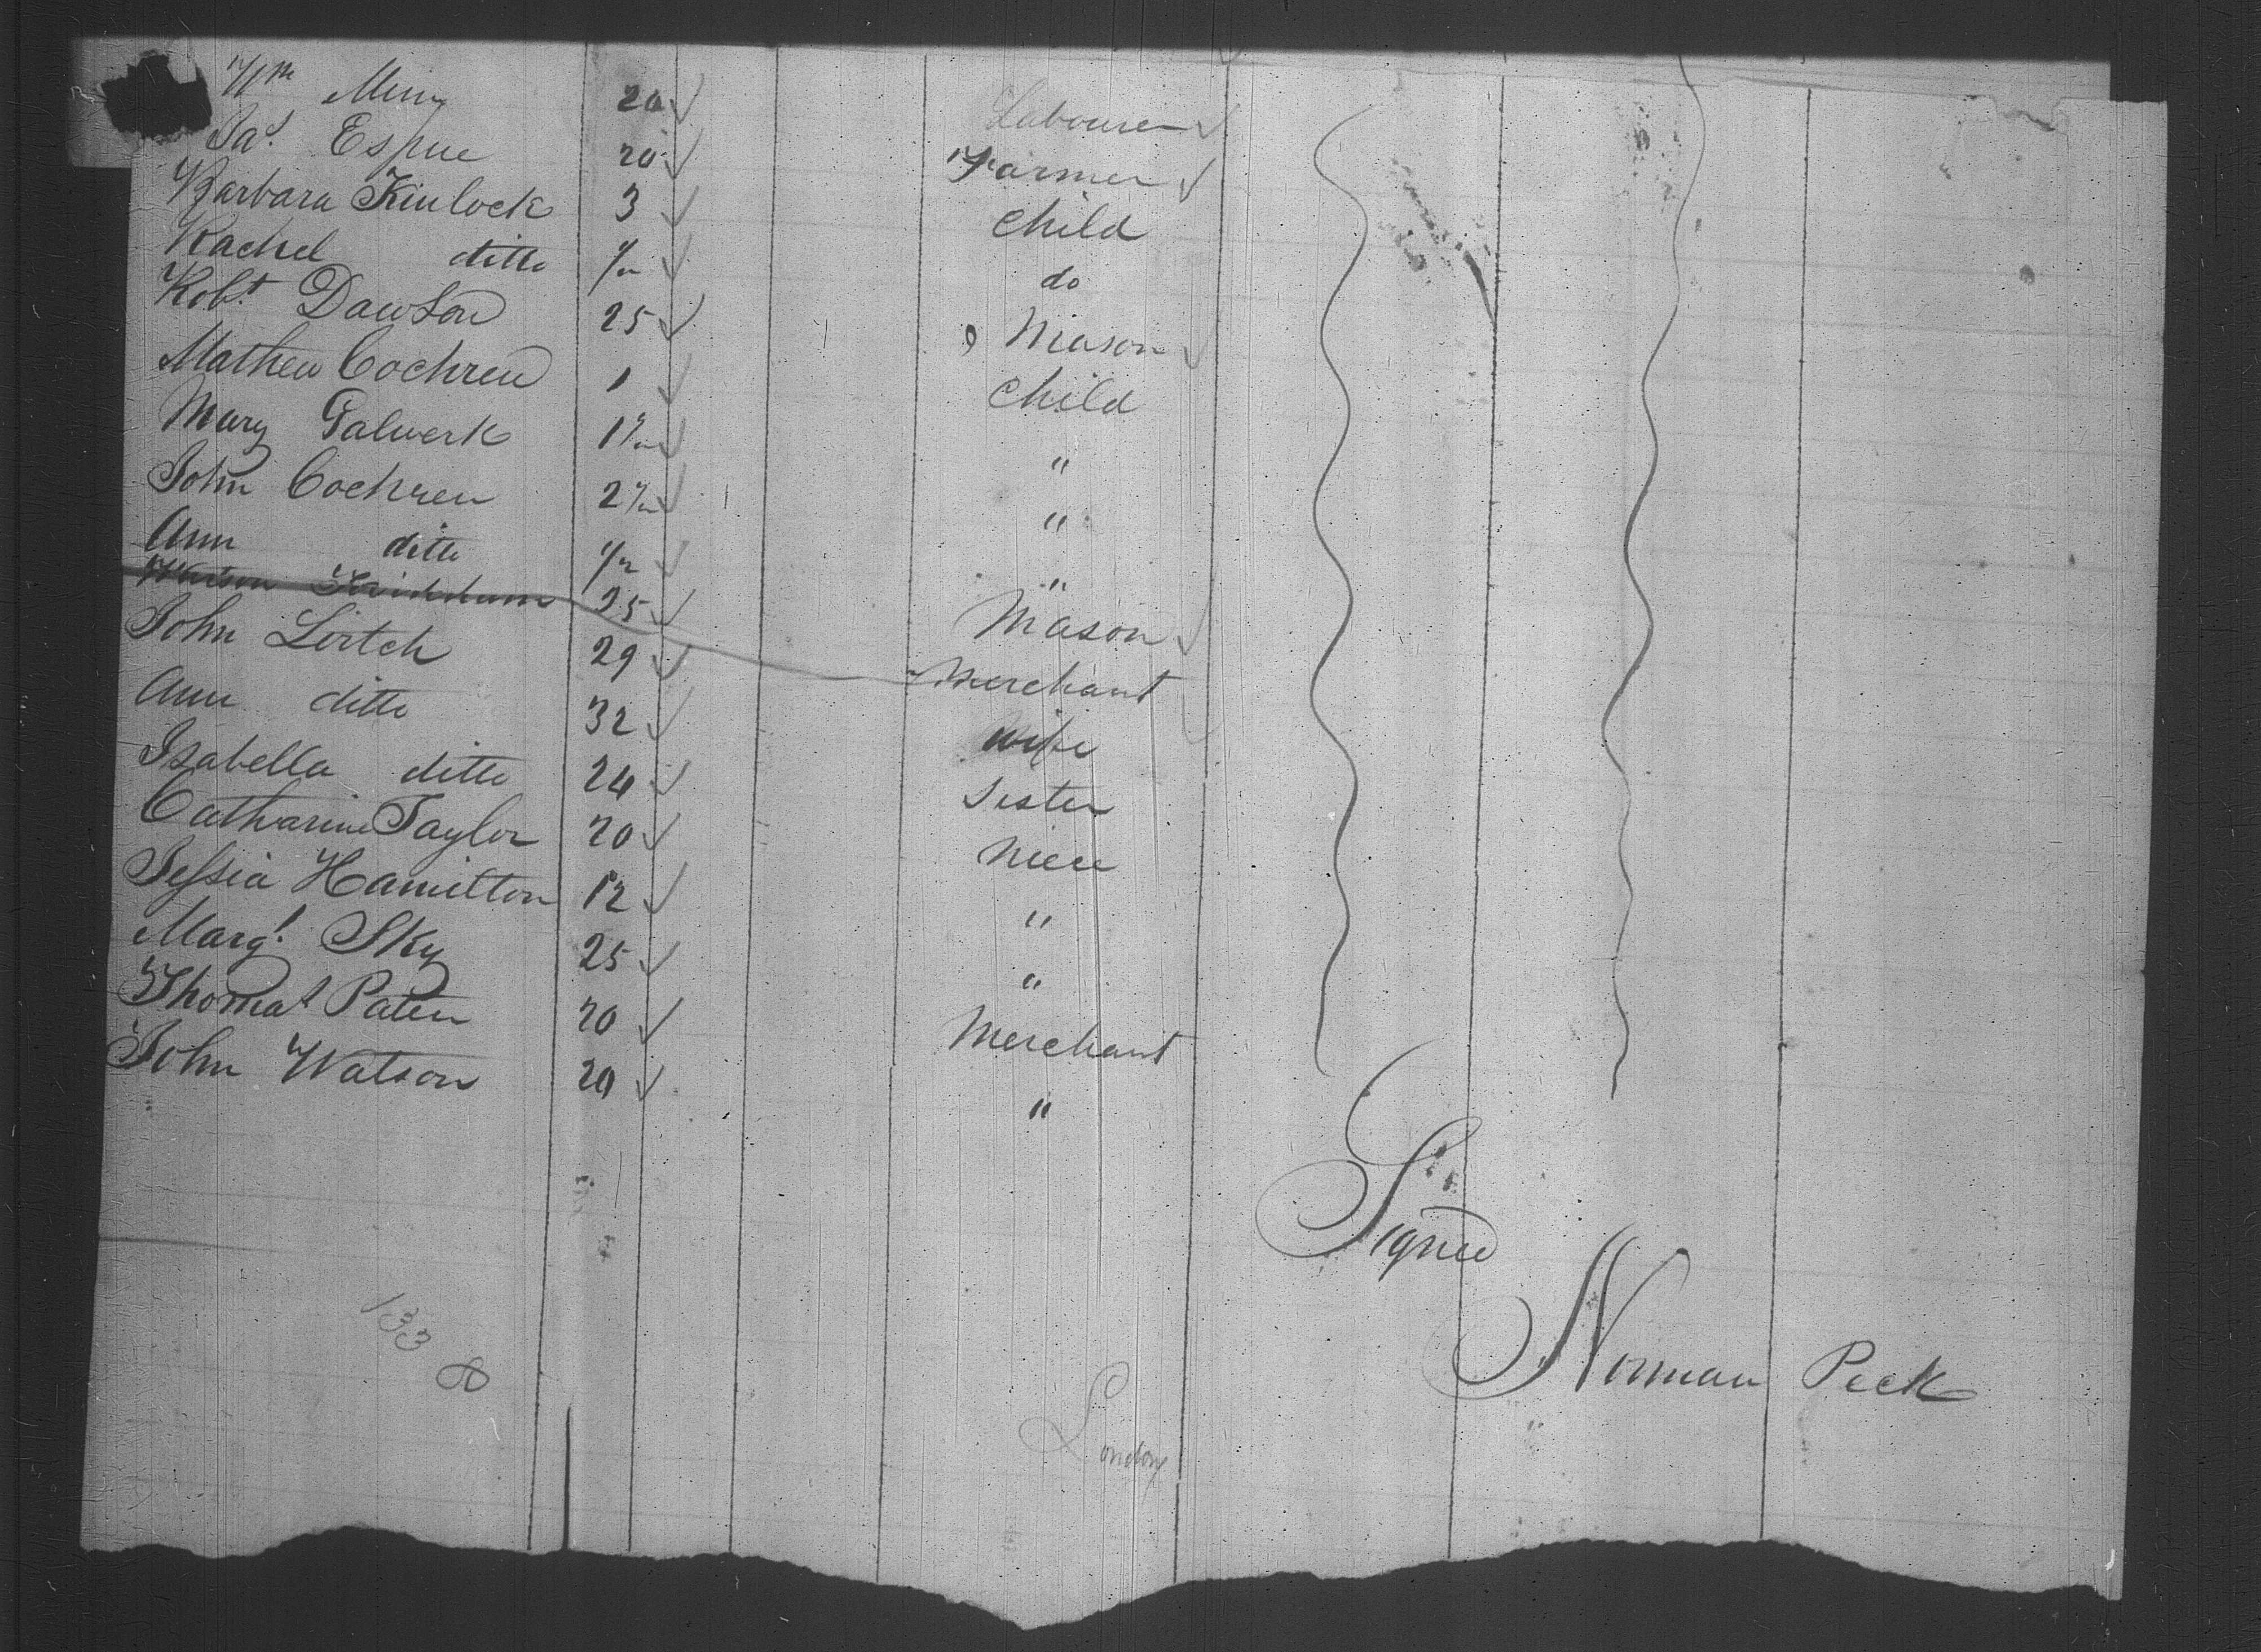 Wm 20 Labourer
Jas. Espue 20 Farmer
Barbara Kinlock 3 Child
Rachel ditto do
Robt. Dawson 25 Mason
Mathew Cochren 1 Child
Mary Galwerk "
John Cochren "
Ann ditto "
Watson 25 Mason
John Lertch 29 Merchant
Ann ditto 32 Wife
Isabella ditto 24 Sister
Catharine Taylor 20 Niece
Jessia Hamilton 12 "
Margt. Sky 25 "
Thomas Paten 20 Merchant
John Watson 20 "
Signed
Norman Peck
133
8
London